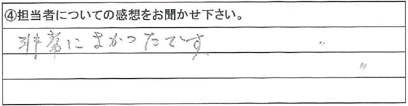 ④担当者についての感想をお聞かせ下さい。
非常によかったです